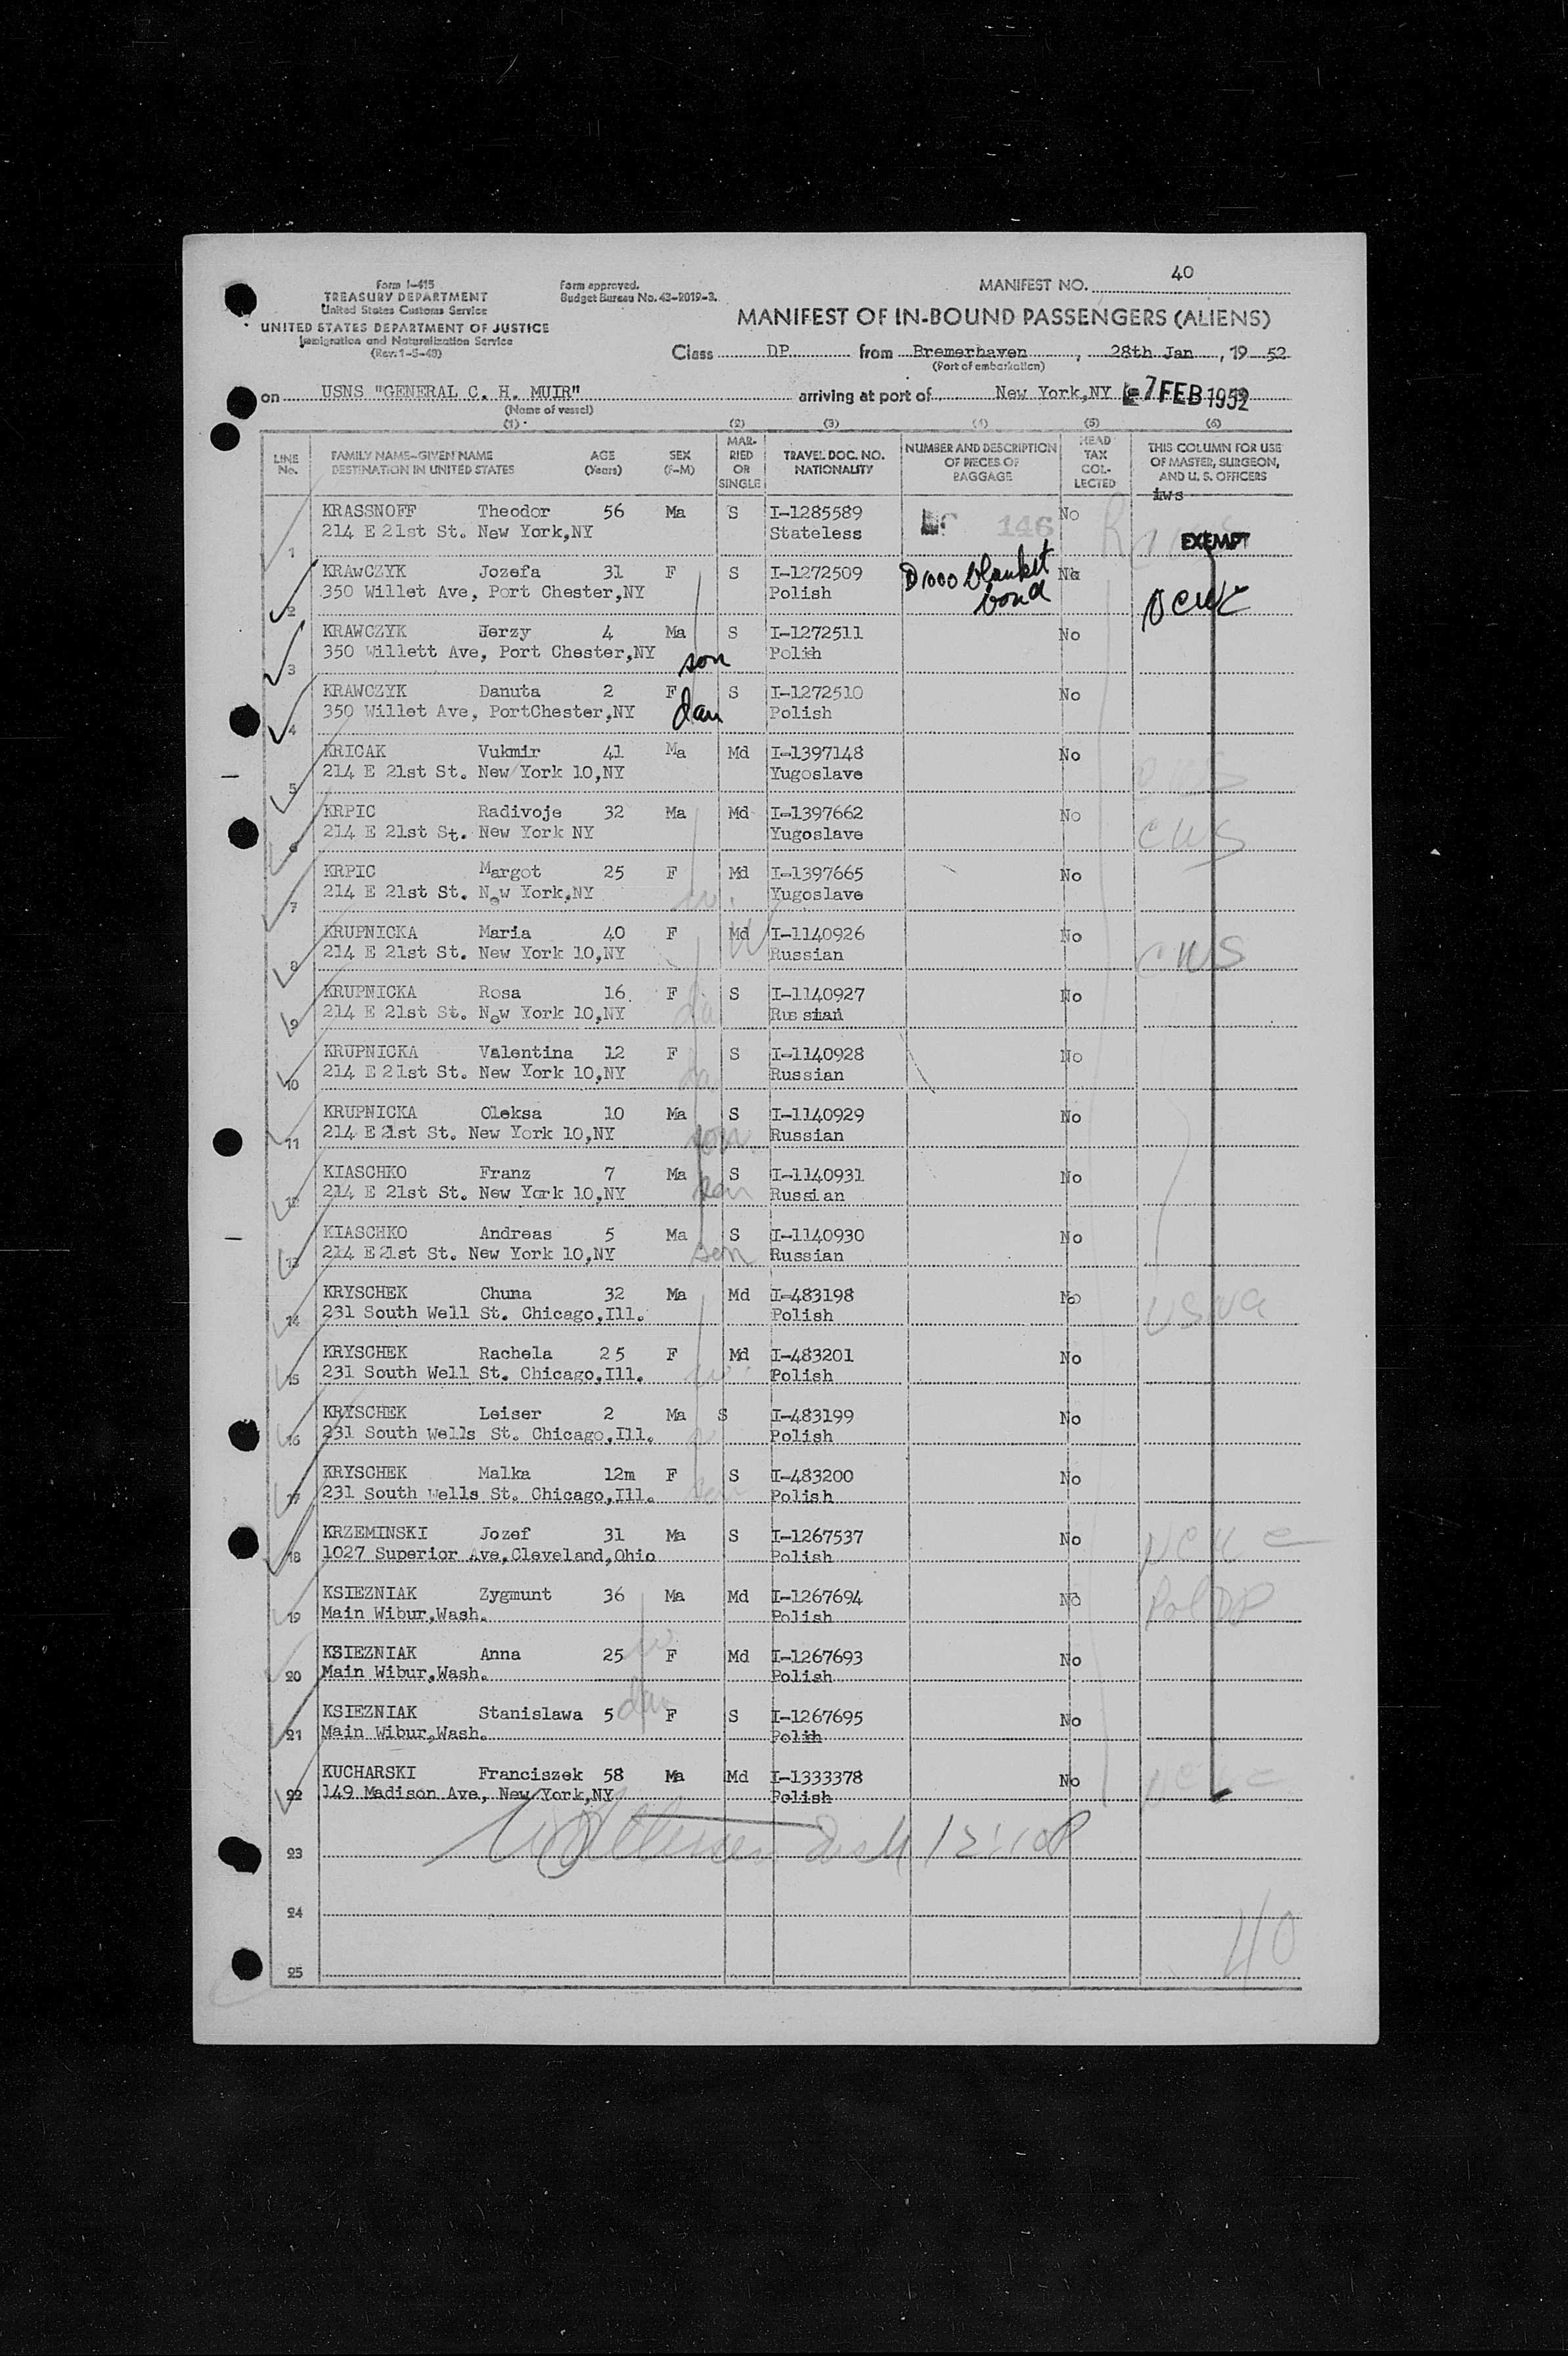 40
Form I-415
TREASURY DEPARTMENT
United States Customs Service
UNITED STATES DEPARTMENT OF JUSTICE
Immigration and Naturalization Service
(Rev. 1-5-49)
Form approved.
Budget Bureau No. 43-R019-3.
MANIFEST NO.
MANIFEST OF IN-BOUND PASSENGERS (ALIENS)
Class DP from Bremerhaven, 28th Jan, 19 52
(Port of embarkation)
on USNS "GENERAL C. H. MUIR" arriving at port of New York,NY 7 FEB 1952
(Name of vessel)
(1) (2) (3) (4) (5) (6)
LINE No. FAMILY NAME–GIVEN NAME DESTINATION IN UNITED STATES AGE (Years) SEX (F-M) MARRIED OR SINGLE TRAVEL DOC. NO. NATIONALITY NUMBER AND DESCRIPTION OF PIECES OF BAGGAGE HEAD TAX COLLECTED THIS COLUMN FOR USE OF MASTER, SURGEON, AND U. S. OFFICERS
iws
KRASSNOFF Theodor 56 Ma S I-1285589 146 No
1 214 E 21st St. New York,NY Stateless EXEMPT
KRAWCZYK Jozefa 31 F S I-1272509 D 1000 blanket bond No
2 350 Willet Ave, Port Chester,NY Polish
KRAWCZYK Jerzy 4 Ma S I-1272511 No
3 350 Willett Ave, Port Chester,NY son Polih
KRAWCZYK Danuta 2 F S I-1272510 No
4 350 Willet Ave, PortChester,NY dau Polish
KRICAK Vukmir 41 Ma Md I-1397148 No
5 214 E 21st St. New York 10,NY Yugoslave
KRPIC Radivoje 32 Ma Md I-1397662 No
6 214 E 21st St. New York NY Yugoslave CWS
KRPIC Margot 25 F Md I-1397665 No
7 214 E 21st St. New York,NY w. Yugoslave
KRUPNICKA Maria 40 F Md W I-1140926 No
8 214 E 21st St. New York 10,NY Russian CWS
KRUPNICKA Rosa 16 F S I-1140927 No
9 214 E 21st St. New York 10,NY da Russian
KRUPNICKA Valentina 12 F S I-1140928 No
10 214 E 21st St. New York 10,NY da Russian
KRUPNICKA Oleksa 10 Ma S I-1140929 No
11 214 E 21st St. New York 10,NY son Russian
KIASCHKO Franz 7 Ma S I-1140931 No
12 214 E 21st St. New York 10,NY son Russian
KIASCHKO Andreas 5 Ma S I-1140930 No
13 214 E 21st St. New York 10,NY son Russian
KRYSCHEK Chuna 32 Ma Md I-483198 No
14 231 South Well St. Chicago,Ill. Polish USNA
KRYSCHEK Rachela 25 F Md I-483201 No
15 231 South Well St. Chicago,Ill. w Polish
KRYSCHEK Leiser 2 Ma S I-483199 No
16 231 South Wells St. Chicago,Ill. Polish
KRYSCHEK Malka 12m F S I-483200 No
17 231 South Wells St. Chicago,Ill. Polish
KRZEMINSKI Jozef 31 Ma S I-1267537 No
18 1027 Superior Ave,Cleveland,Ohio Polish
KSIEZNIAK Zygmunt 36 Ma Md I-1267694 No
19 Main Wibur,Wash. Polish Pol DP
KSIEZNIAK Anna 25 w F Md I-1267693 No
20 Main Wibur,Wash. Polish
KSIEZNIAK Stanislawa 5 dau F S I-1267695 No
21 Main Wibur,Wash. Polih
KUCHARSKI Franciszek 58 Ma Md I-1333378 No
22 149 Madison Ave, New York,NY Polish
23
24
40
25